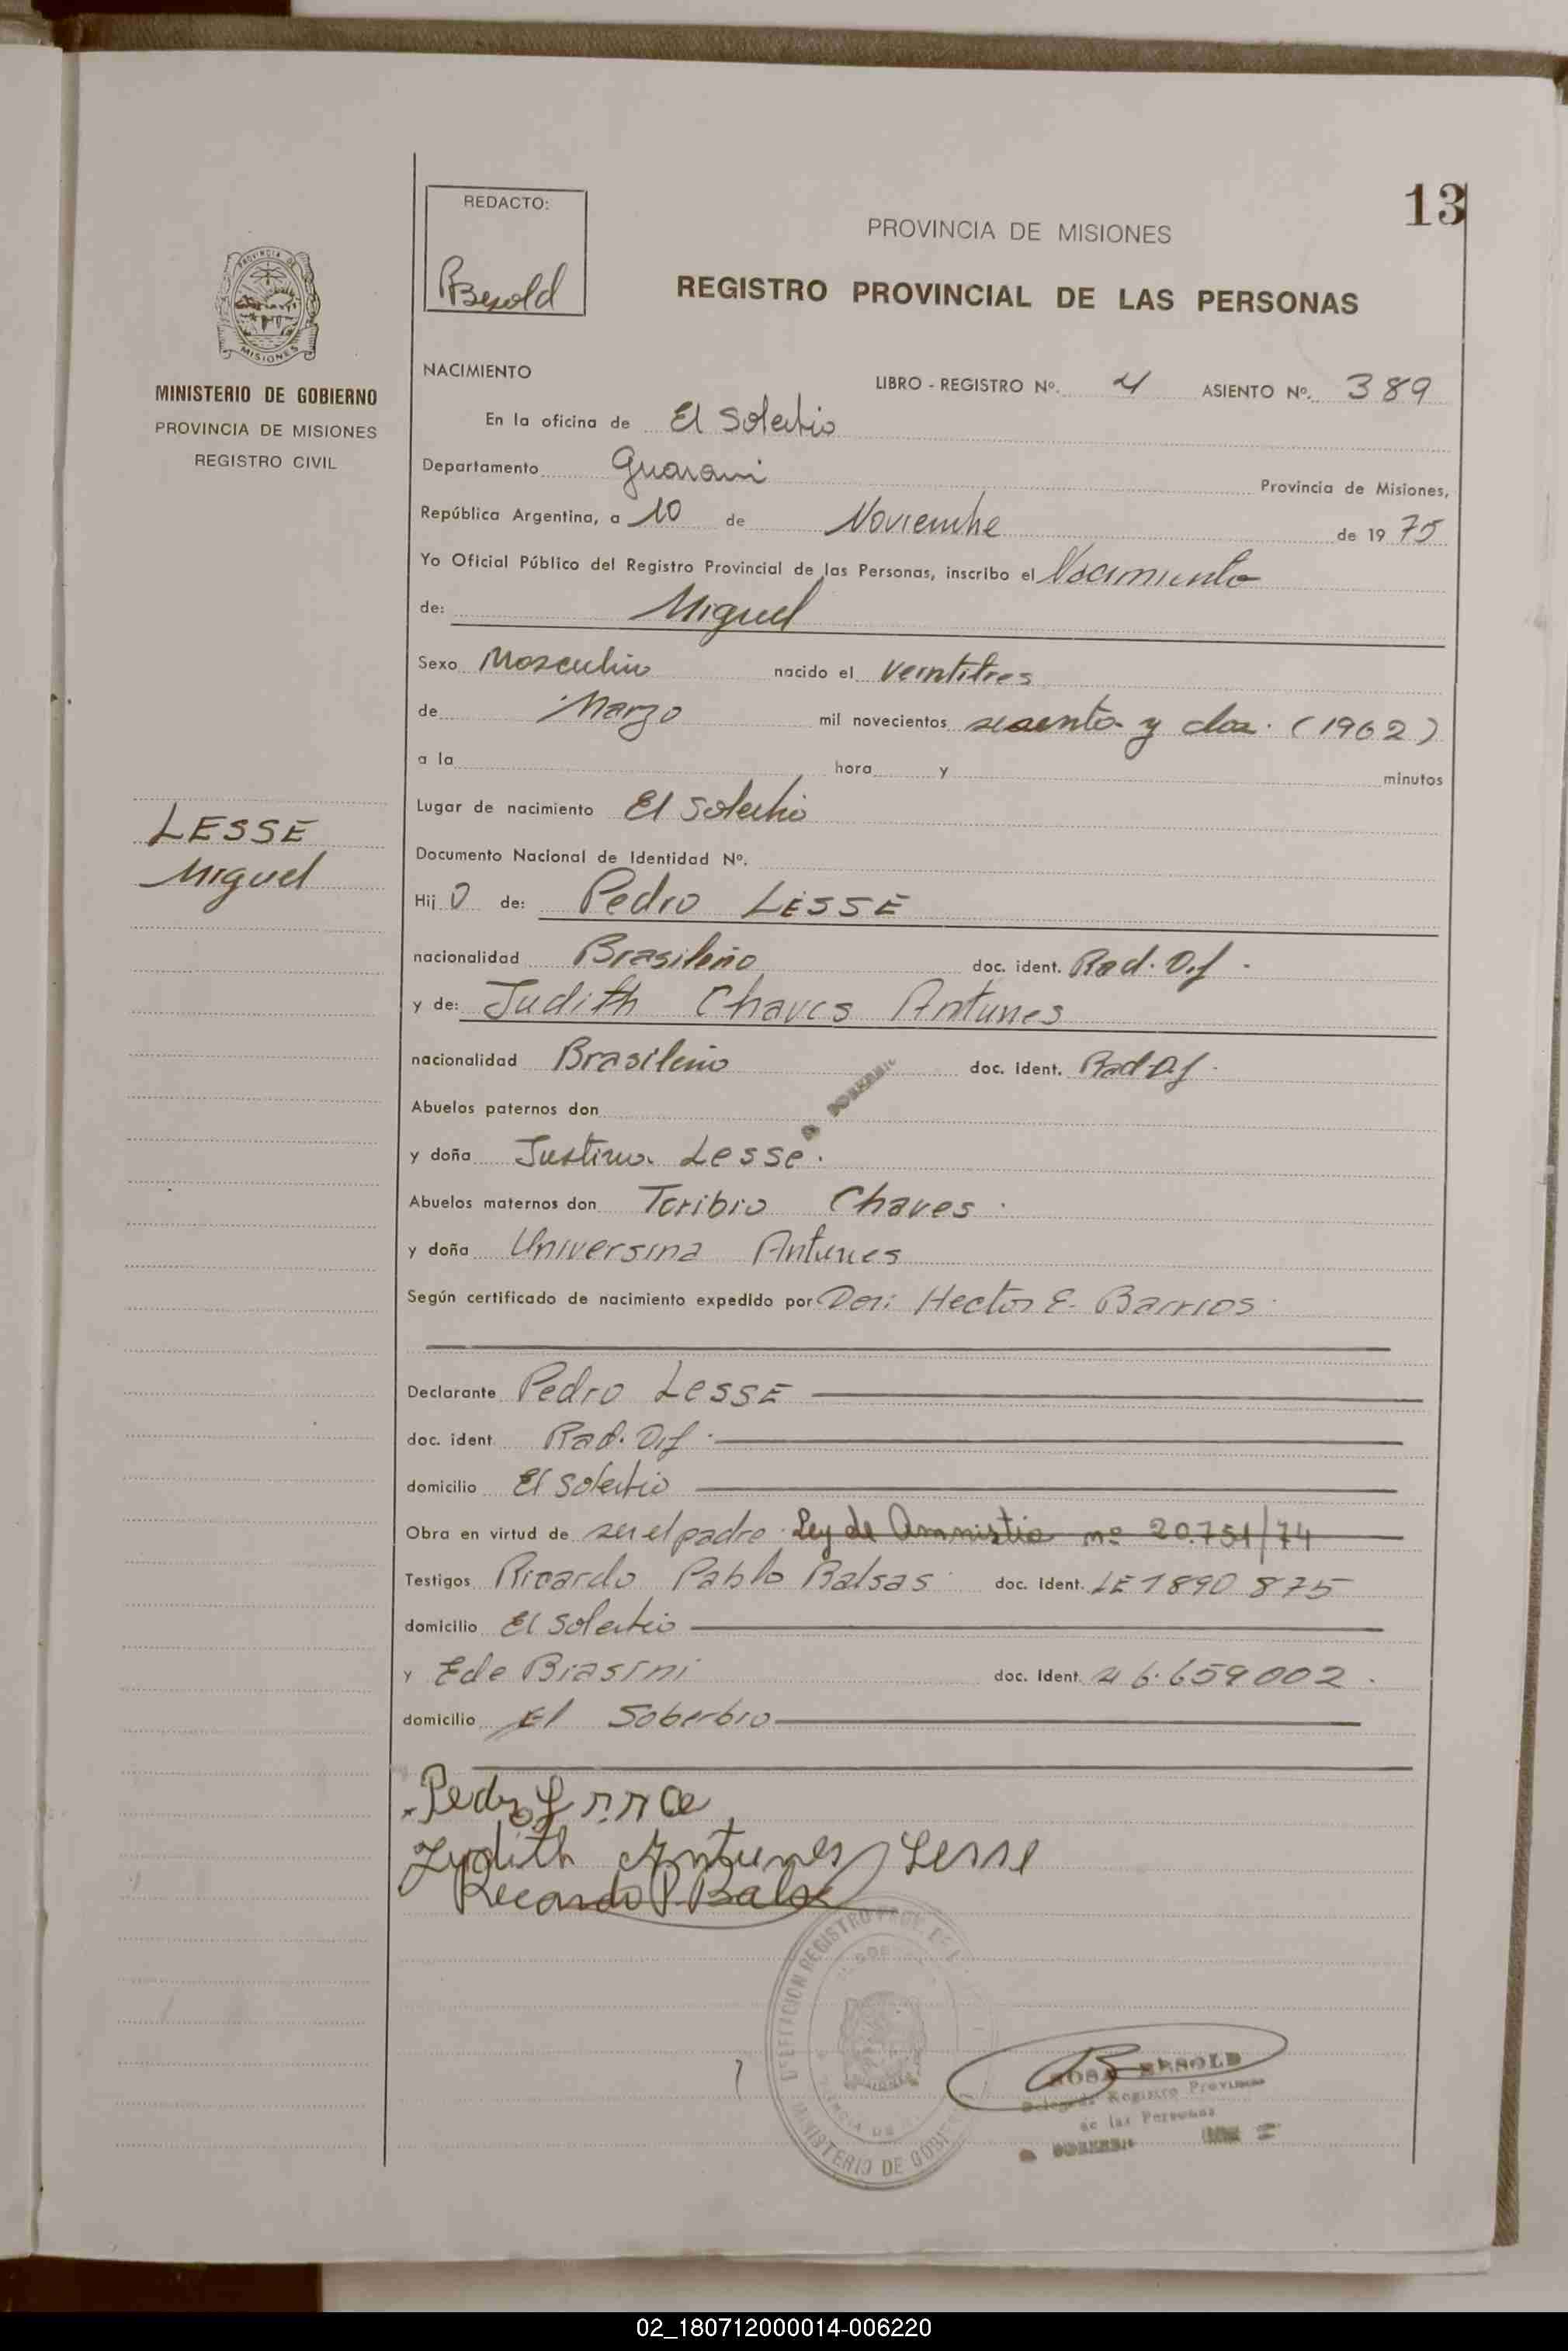 13
REDACTO:
Besold
PROVINCIA DE MISIONES
REGISTRO PROVINCIAL DE LAS PERSONAS
PROVINCIA DE
MISIONES
MINISTERIO DE GOBIERNO
PROVINCIA DE MISIONES
REGISTRO CIVIL
NACIMIENTO
LIBRO - REGISTRO Nº. 4 ASIENTO Nº. 389
En la oficina de El Soberbio
Departamento Guarani Provincia de Misiones,
República Argentina, a 10 de Noviembre de 1975
Yo Oficial Público del Registro Provincial de las Personas, inscribo el Nacimiento
de: Miguel
Sexo Masculino nacido el veintitres
de Marzo mil novecientos sesenta y dos. (1962)
a la hora y minutos
Lugar de nacimiento El Soberbio
LESSE
Miguel
Documento Nacional de Identidad Nº.
Hij o de: Pedro LESSE
nacionalidad Brasileño doc. ident. Rad. Dif.
y de: Judith Chaves Antunes
nacionalidad Brasileño doc. ident. Rad. Dif.
Abuelos paternos don
y doña Justina Lesse.
Abuelos maternos don Toribio Chaves.
y doña Universina Antunes
Según certificado de nacimiento expedido por Don: Hector E. Barrios
Declarante Pedro LESSE
doc. ident Rad. Dif.
domicilio El Soberbio
Obra en virtud de ser el padre. Ley de Amnistia nº 20.751/74
Testigos Ricardo Pablo Balsas doc. Ident. LE 1890 875
domicilio El Soberbio
y Ede Biasini doc. Ident. 6.659002.
domicilio El Soberbio
Pedro
Judith Antunes Lesse
Recardo P. Balsa
DELEGACION REGISTRO PROV. DE
MINISTERIO DE GOBIE
ROSA BESOLD
Delegada Registro Provincial
de las Personas
02_180712000014-006220